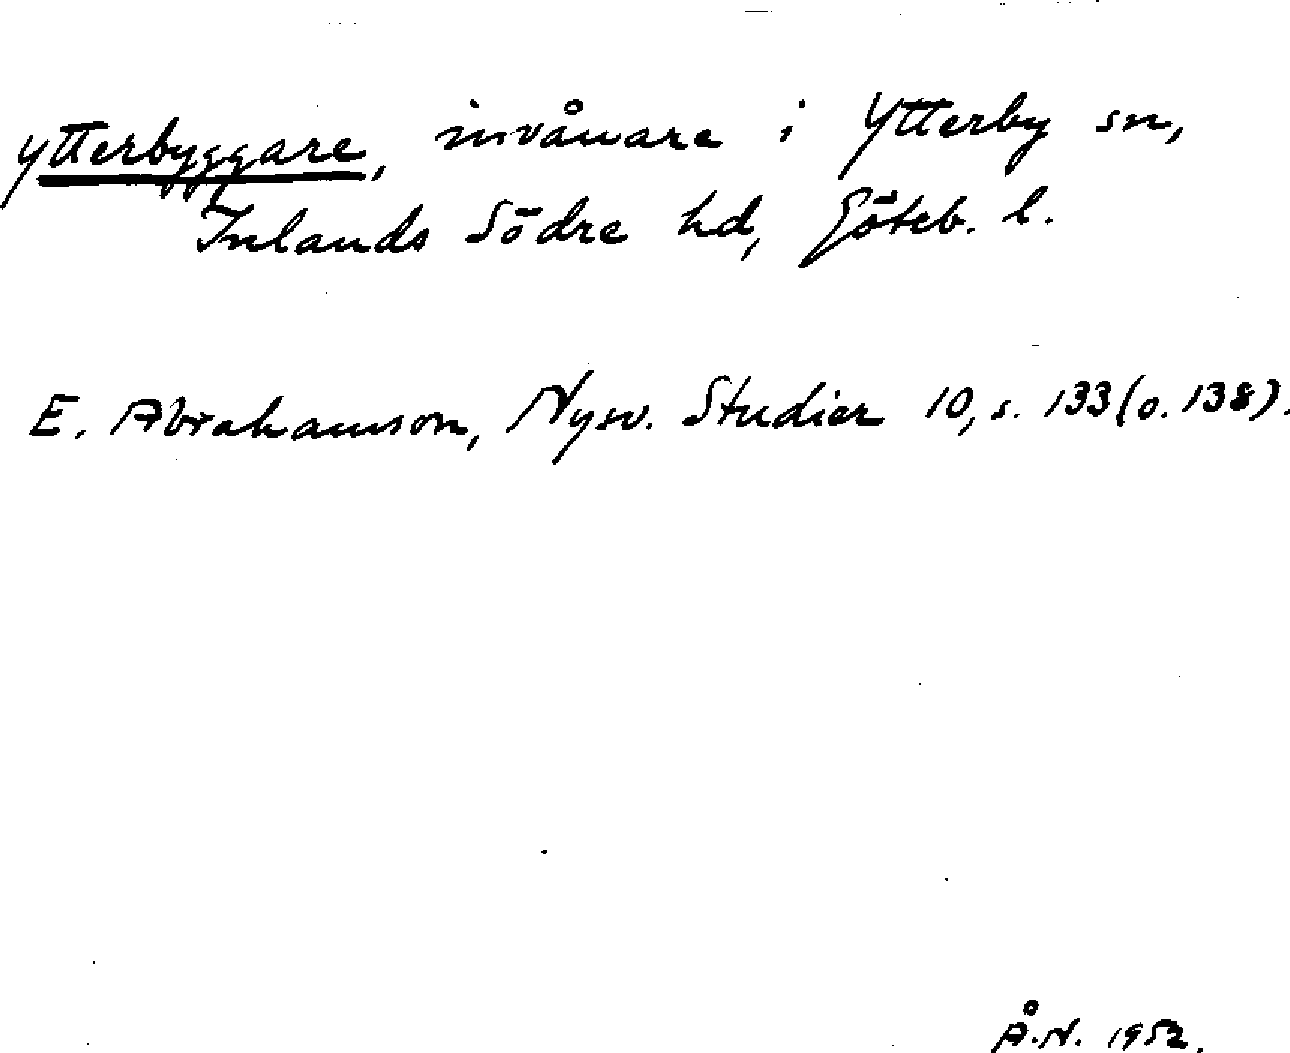 ytterbyggare, invånare i Ytterby sn,
Inlands Södre hd, Göteb. l.
E. Abrahamson, Nysv. Studier 10, s. 133 (o. 138).
Å.N. 1952.